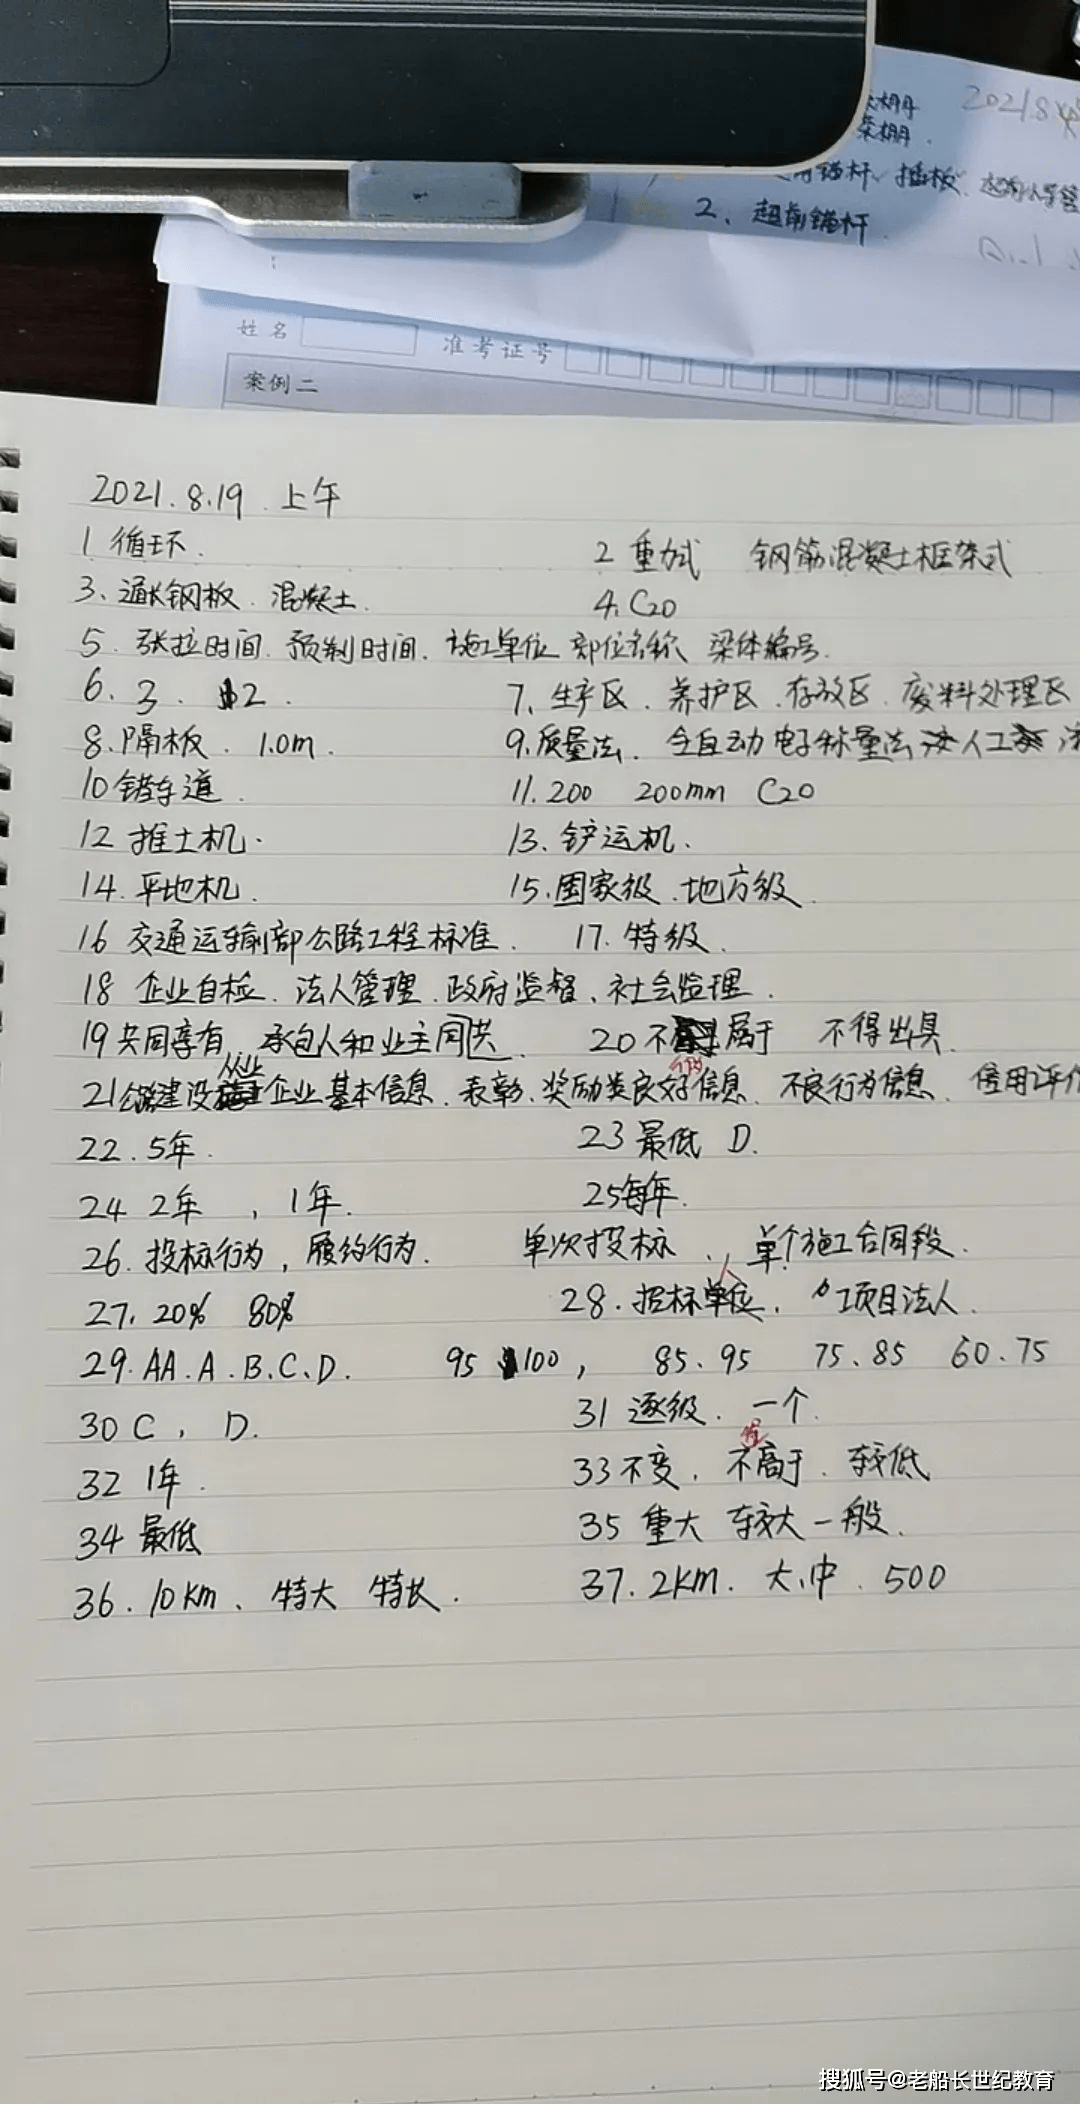 2021.8
棚
锚杆、插板、超前小导管
2、超前锚杆
姓名
准考证号
案例二
2021.8.19.上午
1 循环.
2 重力式 钢筋混凝土框架式
3、通长钢板.混凝土.
4.C20
5.张拉时间.预制时间.施工单位 部位名称、梁体编号.
6.3.2.
7.生产区.养护区.存放区.废料处理区
8.隔板.1.0m.
9.质量法.全自动电子称量法 人工
10错车道.
11.200 200mm C20
12 推土机.
13、铲运机.
14.平地机.
15.国家级.地方级.
16 交通运输部公路工程标准.
17.特级.
18 企业自检.法人管理.政府监督、社会监理.
19共同享有.承包人和业主同共.
20不属于 不得出具.
从业
21公路建设企业基本信息.表彰、奖励类良好信息.不良行为信息.信用评价
22.5年.
23最低 D.
24 2年,1年.
25每年.
26.投标行为,履约行为.单次投标、单个施工合同段.
27.20% 80%
人
28.招标,项目法人.
29.AA.A.B.C、D. 95 100, 85、95 75、85 60.75
30 C,D.
31 逐级.一个.
32 1年.
33不变.不高于.较低
34 最低
35 重大 较大 一般.
36.10km、特大 特长.
37.2km.大、中.500
搜狐号@老船长世纪教育